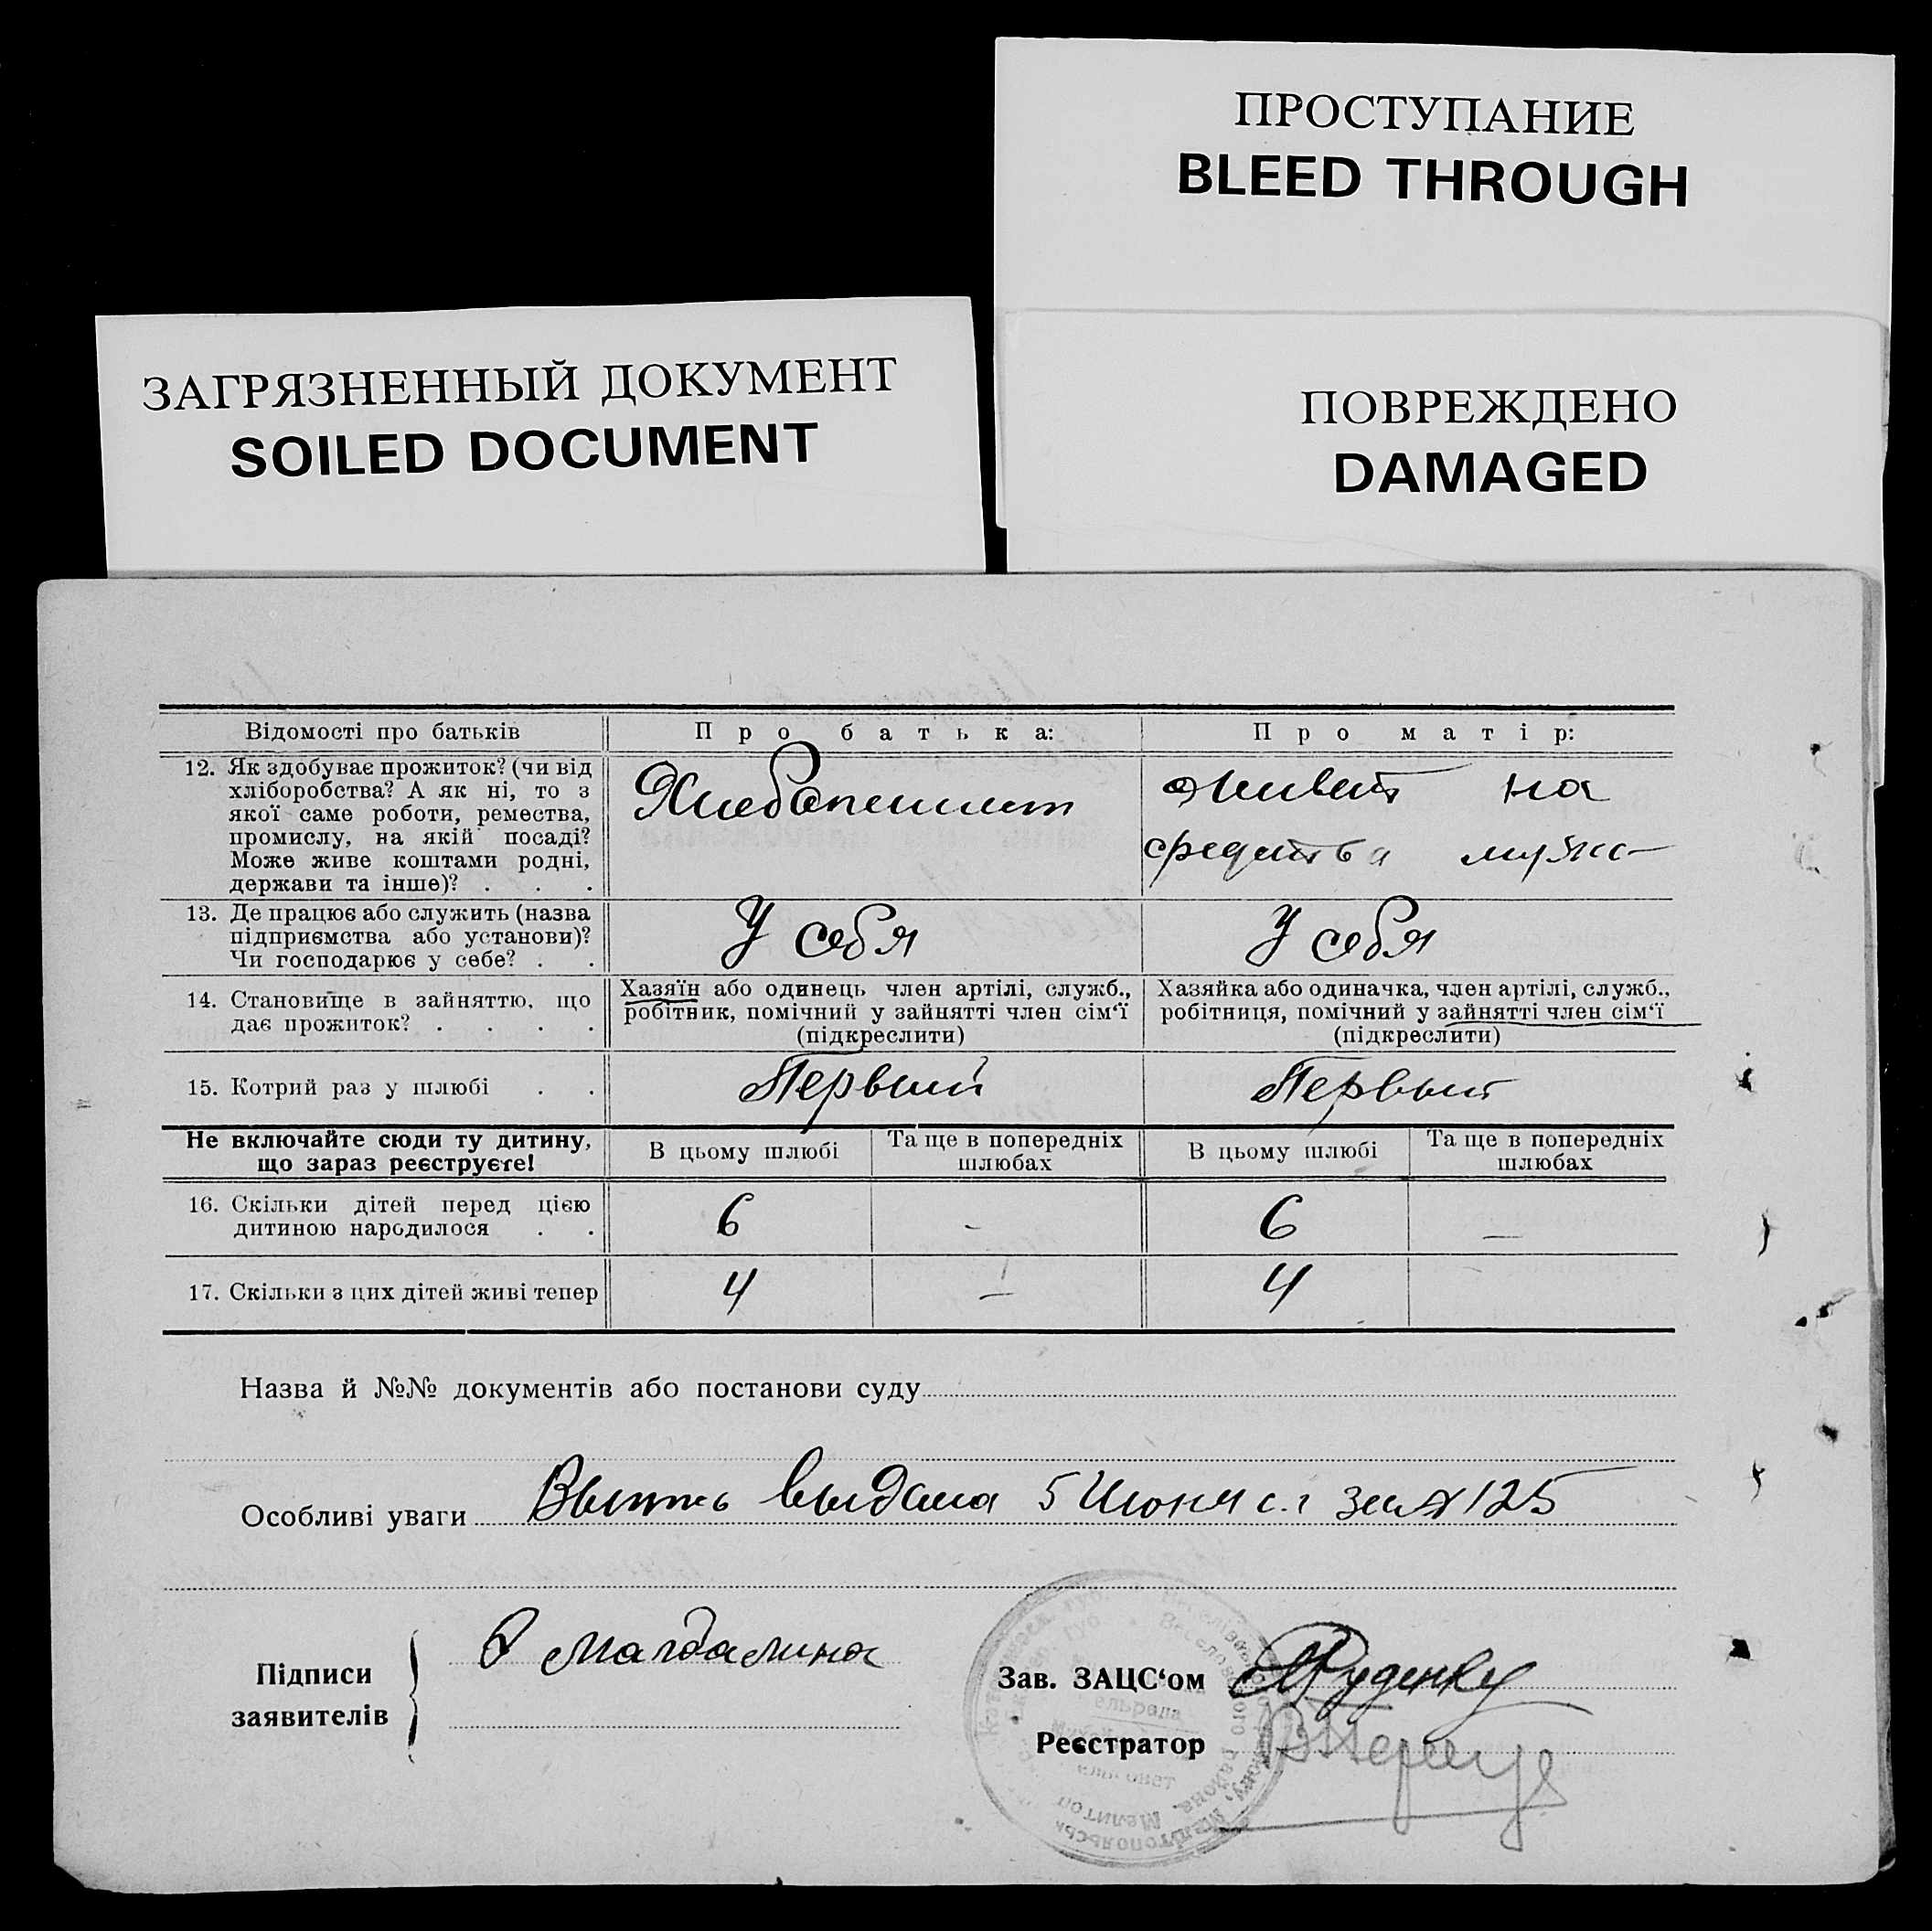 ПРОСТУПАНИЕ
BLEED THROUGH
ПОВРЕЖДЕНО
DAMAGED
ЗАГРЯЗНЕННЫЙ ДОКУМЕНТ
SOILED DOCUMENT
Відомості про батьків
Про батька:
Про матір:
12. Як здобуває прожиток? (чи від
хліборобства? А як ні, то з
якої саме роботи, ремества,
промислу, на якій посаді?
Може живе коштами родні,
держави та інше)? . . .
Хлебопашест
живет на
средства мужа
13. Де працює або служить (назва
підприємства або установи)?
Чи господарює у себе? . .
У себя
У себя
14. Становище в зайняттю, що
дає прожиток? . . . .
Хазяїн або одинець член артілі, служб.,
робітник, помічний у зайнятті член сім'ї
(підкреслити)
Хазяйка або одиначка, член артілі, служб.,
робітниця, помічний у зайнятті член сім'ї
(підкреслити)
15. Котрий раз у шлюбі . .
Первый
Первый
Не включайте сюди ту дитину,
що зараз реєструєте!
В цьому шлюбі
Та ще в попередніх
шлюбах
В цьому шлюбі
Та ще в попередніх
шлюбах
16. Скільки дітей перед цією
дитиною народилося . .
6
-
6
-
17. Скільки з цих дітей живі тепер
4
-
4
Назва й №№ документів або постанови суду
Особливі уваги Выпись выдана 5 Июня с.г за № 125
Підписи
заявителів
Магдалина
Зав. ЗАЦС'ом Руденку
Реєстратор